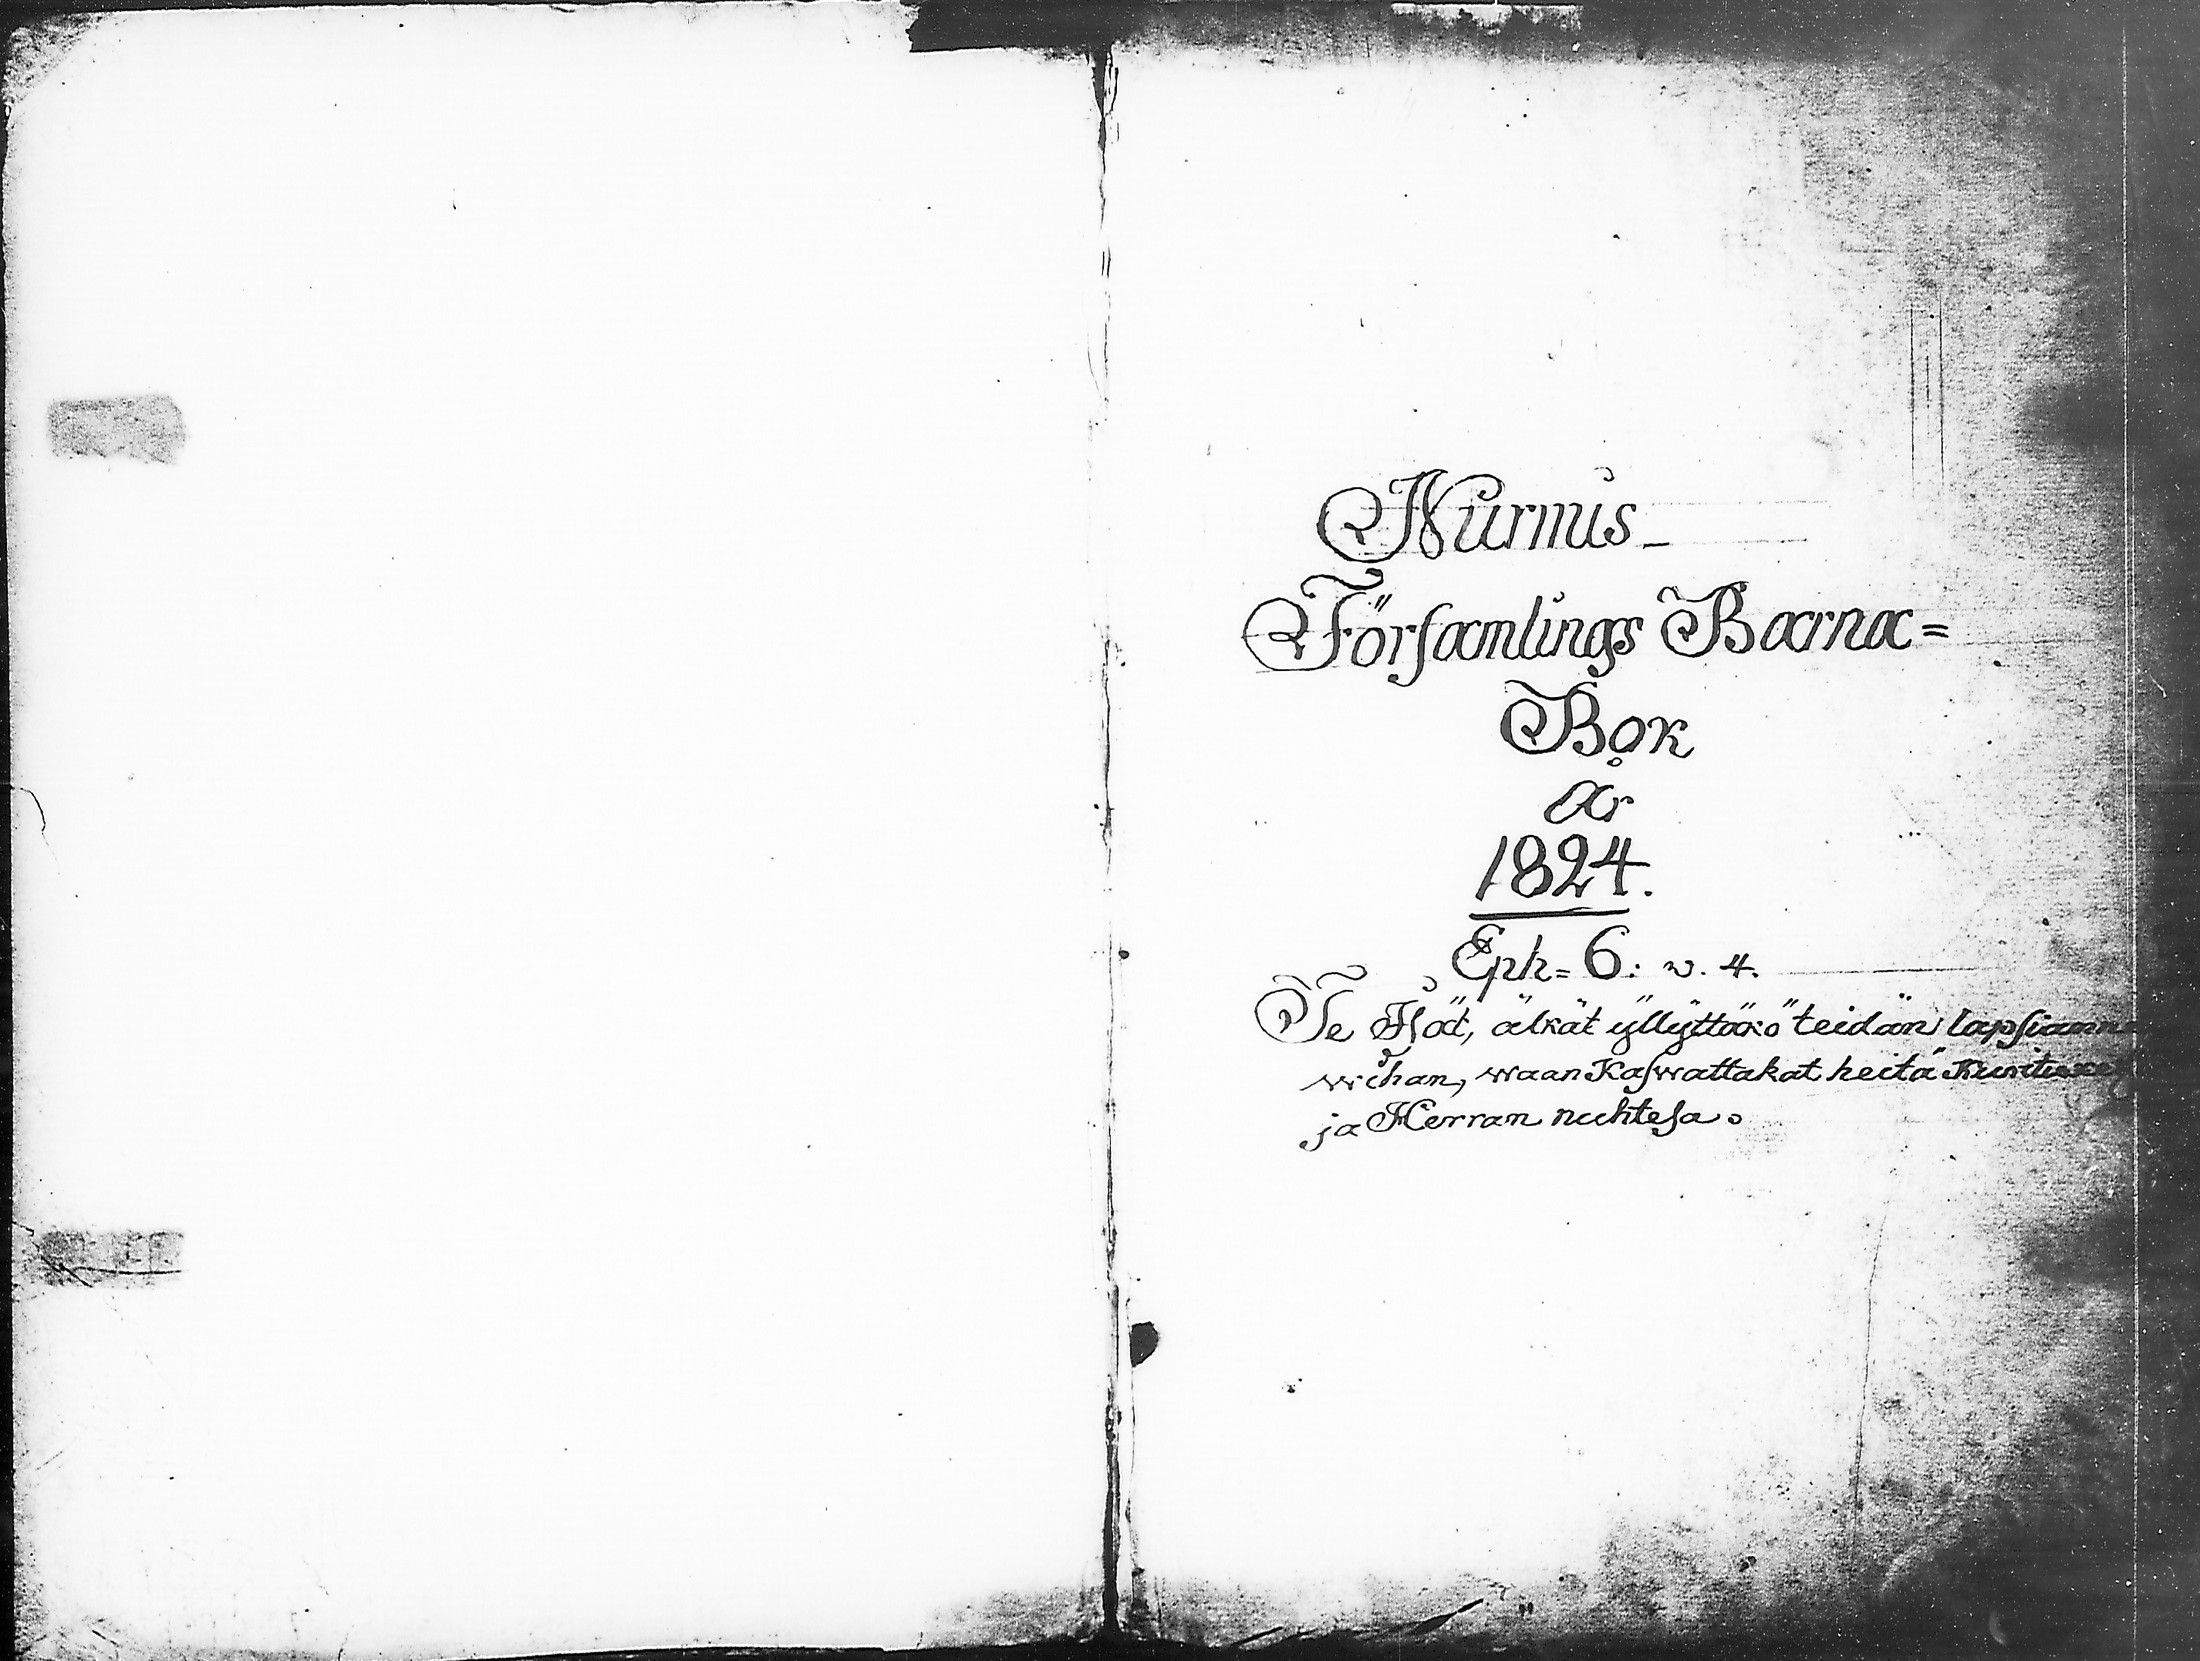 Nurmis_
Församlings Barna=
Bok
År
1824.
Eph= 6: w. 4.
Te Isät, älkät yllyttäkö teidän lapsianne
wihan, waan Kaswattakat heitä
ja Herran nuhtesa.